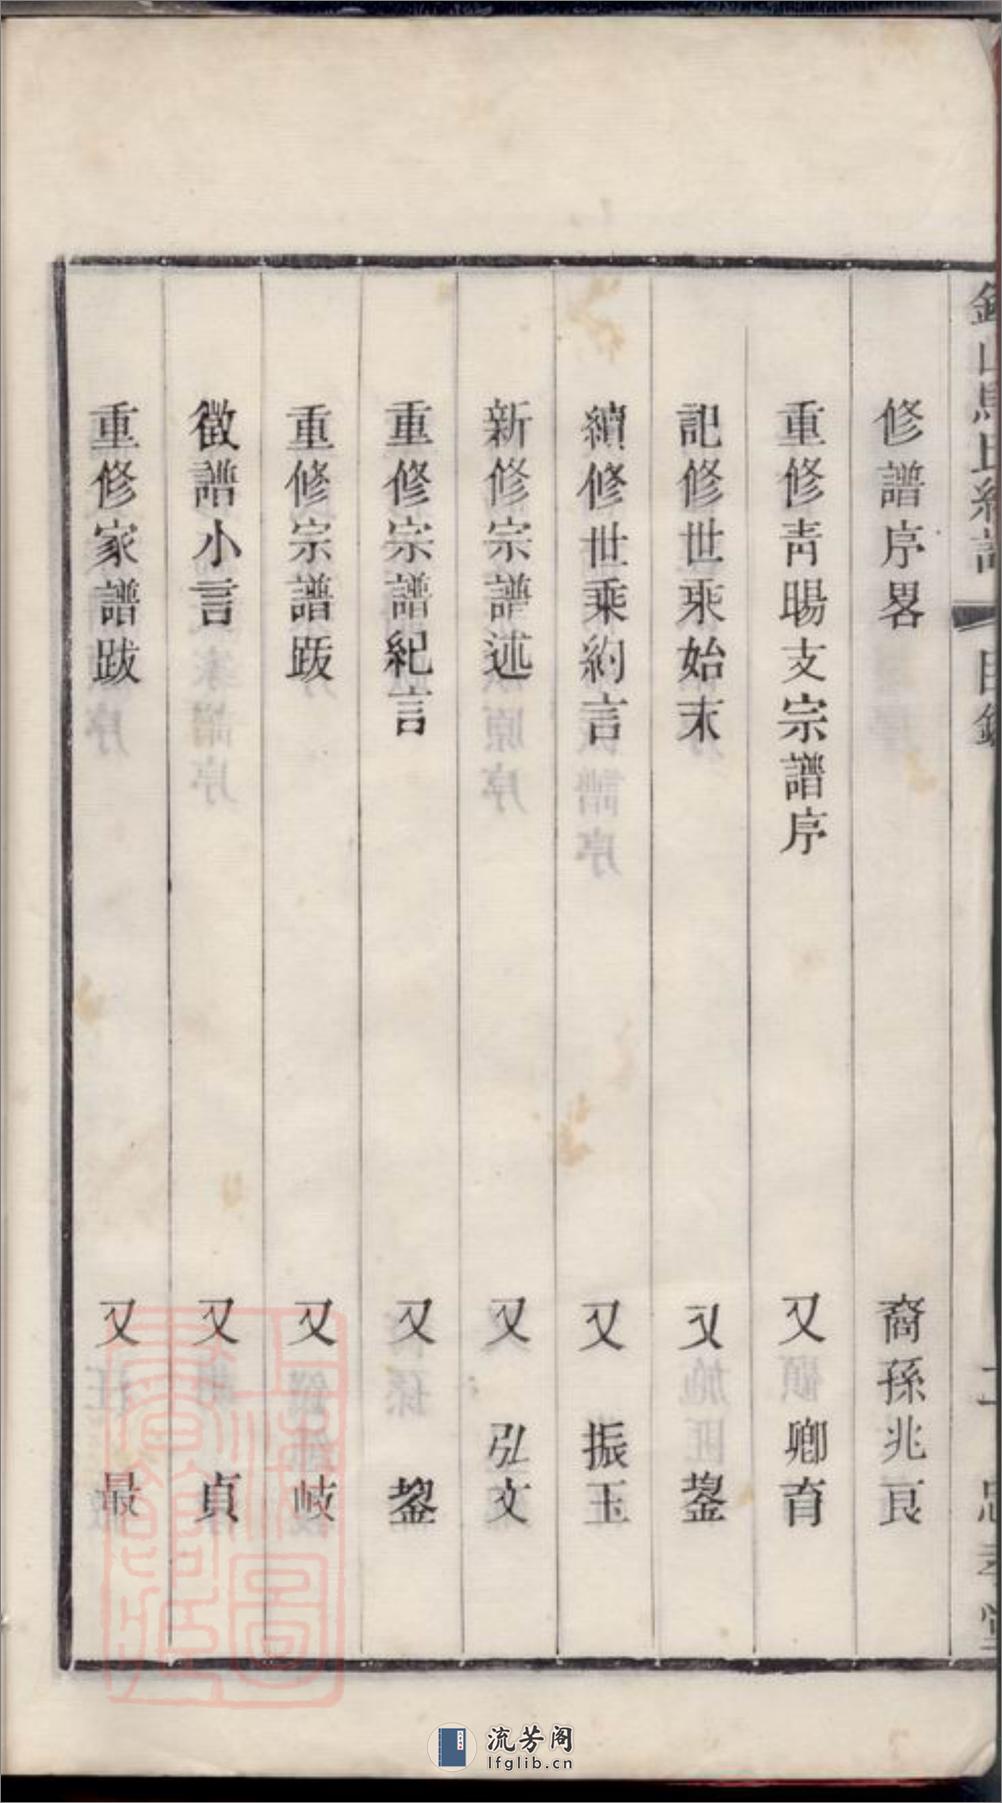 修譜序畧 裔孫兆良
重修青暘支宗譜序 又卿育
記修世乘始末 又鋆
續修世乘約言 又振玉
新修宗譜述 又弘文
重修宗譜紀言 又鋆
重修宗譜跋 又岐
徵譜小言 又貞
重修家譜跋 又最
目錄 二
流芳阁
lfglib.cn